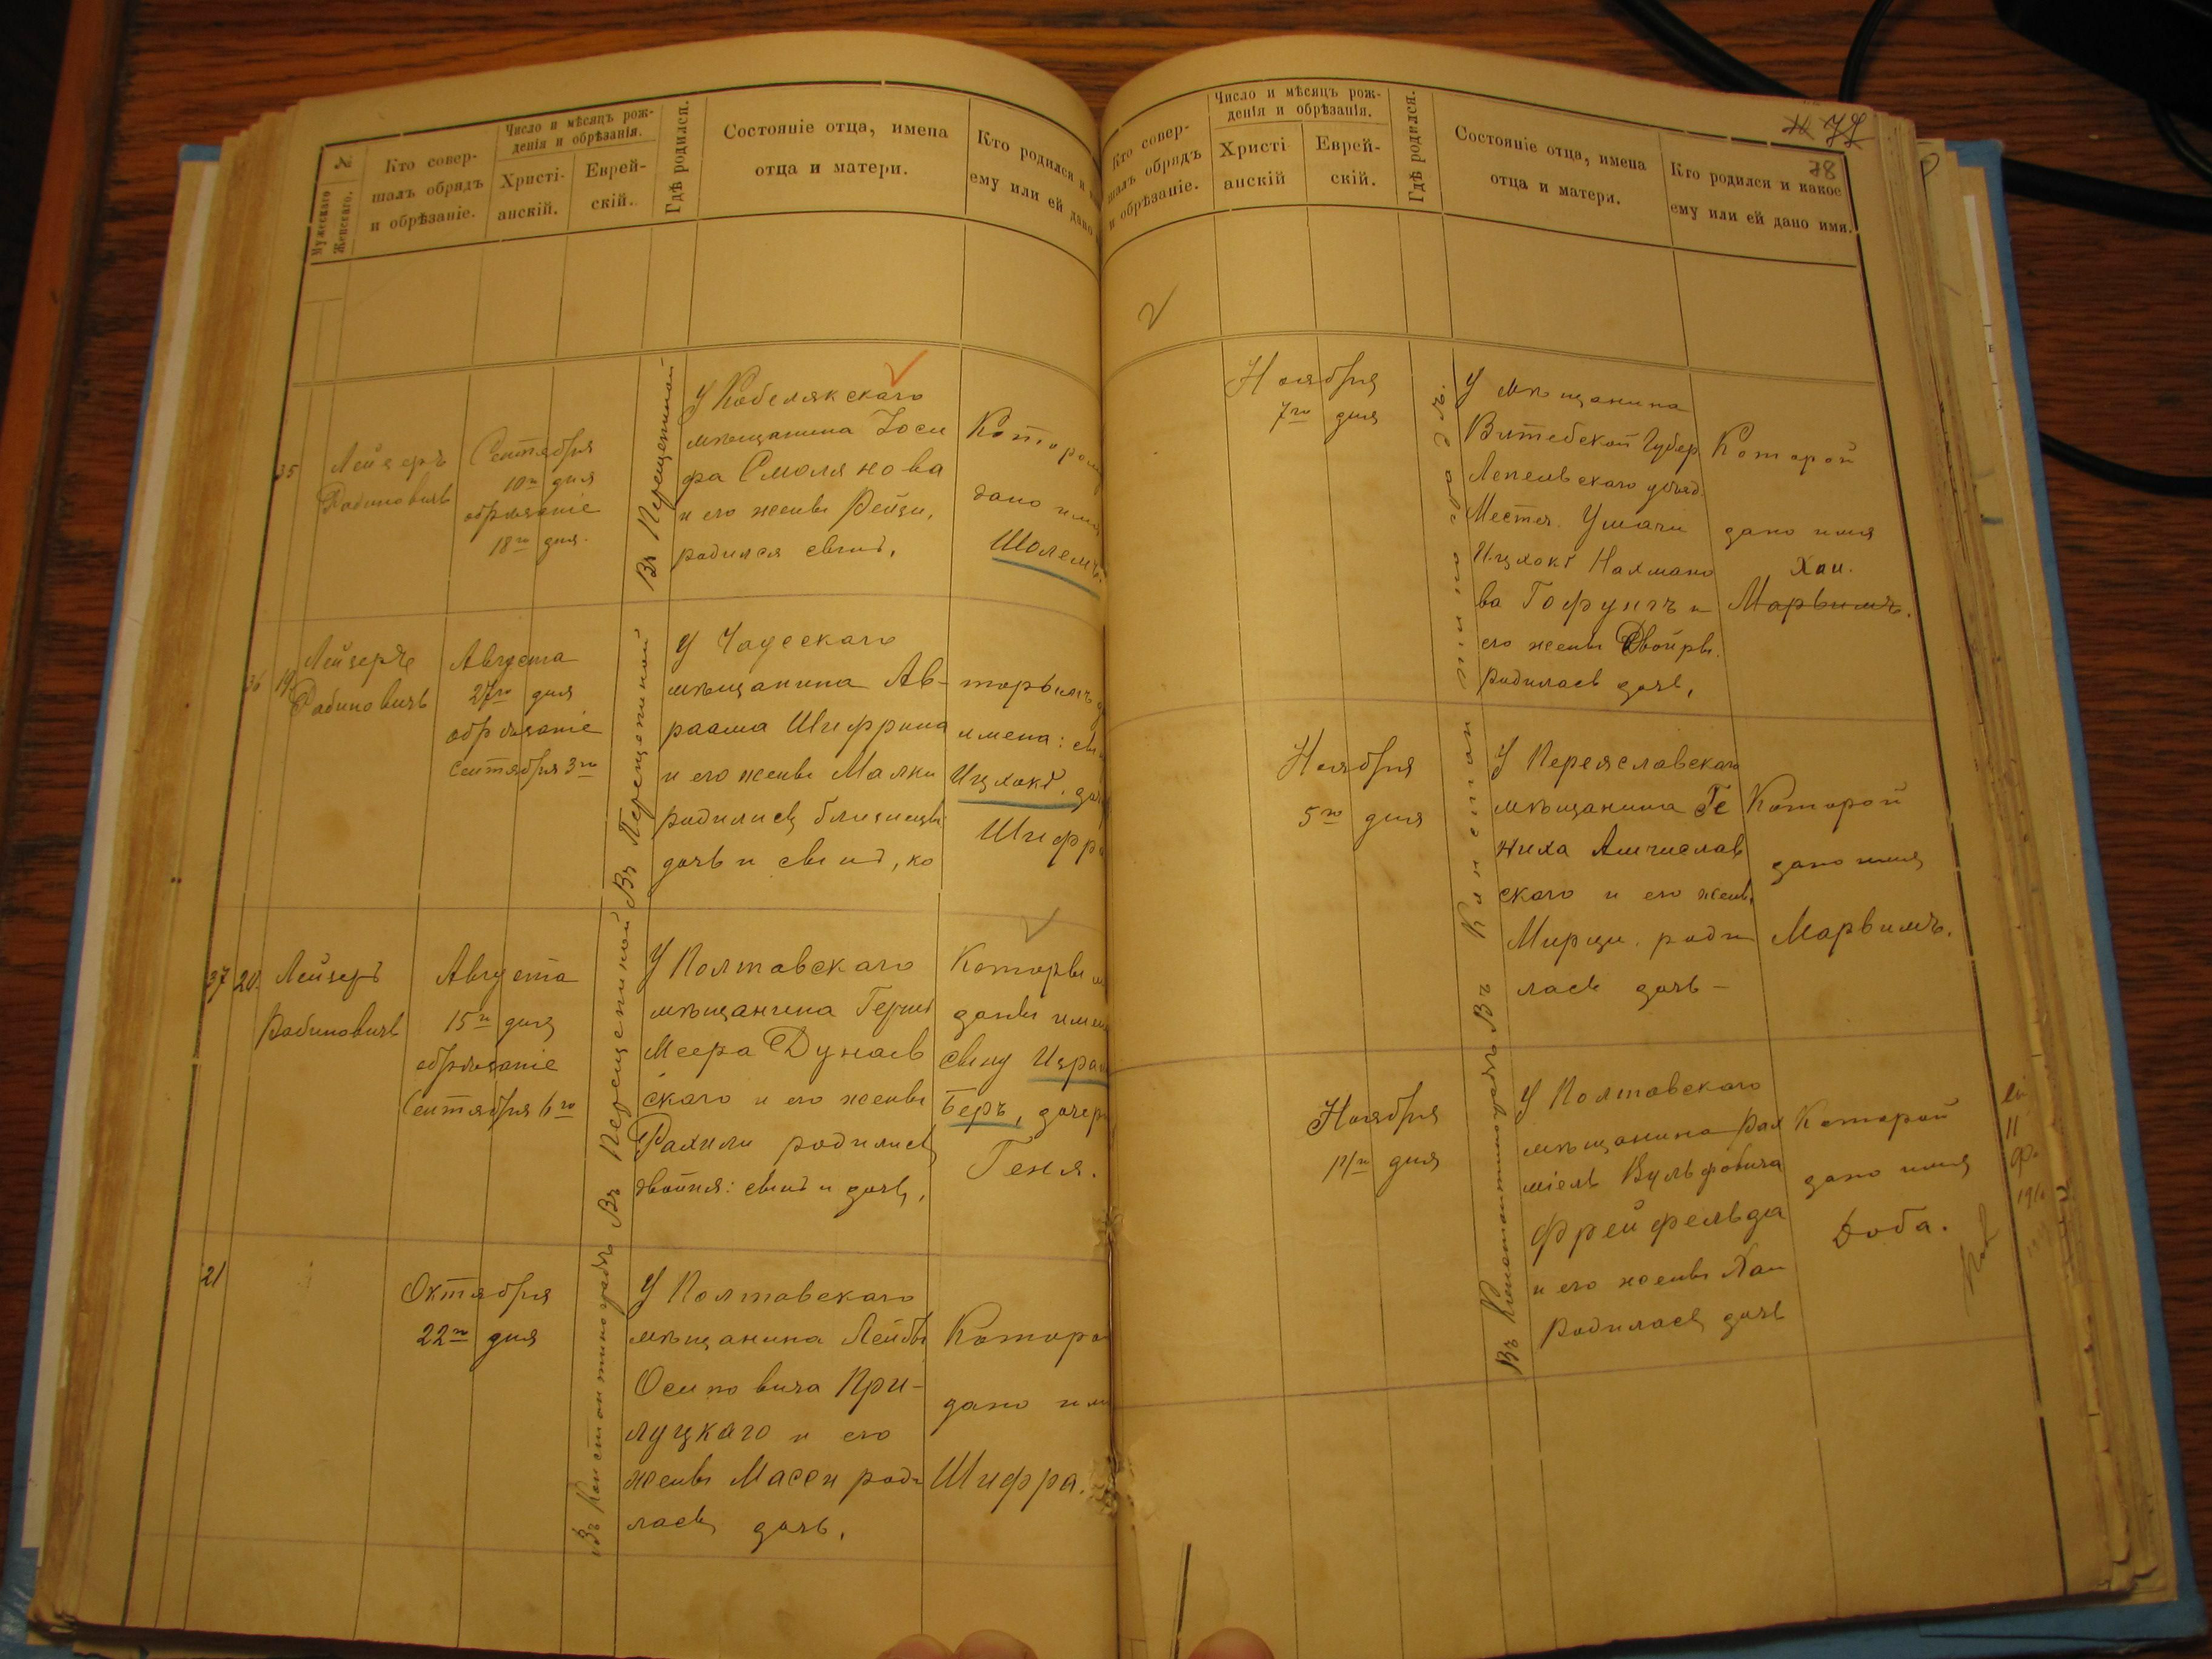 №
Мужескаго
Женскаго.
Кто совер-
шалъ обрядъ
и обрѣзаніе.
Число и мѣсяцъ рож-
денія и обрѣзанія.
Христі-
анскій.
Еврей-
скій.
Гдѣ родился.
Состояніе отца, имена
отца и матери.
Кто родился и
ему или ей дано
35
Лейзеръ
Рабиновичъ
Сентября
10го дня
обрѣзаніе
18го дня.
Въ Перещепиной
У Кобелякскаго
мѣщанина Іоси
фа Смолянова
и его жены Рейзи,
родился сынъ,
дано имя
Шолемъ.
36 19
Лейзеръ
Рабиновичъ
Августа
27го дня
обрѣзаніе
Сентября 3го
Въ Перещепиной
У Чаусскаго
мѣщанина Ав-
раама Шифрина
и его жены Малки
родились близнецы
дочь и сынъ, ко
торымъ
имена:
Ицхокъ,
37 20.
Лейзеръ
Рабиновичъ
Августа
15го дня
обрѣзаніе
Сентября 6го
Въ Перещепиной
У Полтавскаго
мѣщанина Герша
Меера Дунаев
скаго и его жены
Рахили родились
двойня: сынъ и дочь,
даны
сыну
Беръ,
Геня.
21
Октября
22го дня
Въ Константиноградѣ
У Полтавскаго
мѣщанина Лейбы
Осиповича При-
луцкаго и его
жены Масси роди
лась дочь,
дано
Шифра.
Кто совер-
шалъ обрядъ
и обрѣзаніе.
Число и мѣсяцъ рож-
денія и обрѣзанія.
Христі
анскій
Еврей-
скій.
Гдѣ родился.
Состояніе отца, имена
отца и матери.
78
Кто родился и какое
ему или ей дано имя.
Ноября
7го дня
У мѣщанина
Витебской Губер
Лепельскаго уѣзд.
Местеч. Ушачи
Ицхокъ Нахмано
ва Гофунгъ и
его жены Двойры.
родилась дочь,
Которой
дано имя
Хаи.
Марьимъ.
Ноября
5го дня
Въ Константиноградѣ.
У Переяславскаго
мѣщанина Ге
ниха Амчислав
скаго и его жены
Мирци. роди
лась дочь –
Которой
дано имя
Марьимъ.
Ноября
дня
Въ Константиноградѣ
У Полтавскаго
мѣщанина Рах
міель Вульфовича
Фрейфельда
и его жены Хаи
родилась дочь
Которой
дано имя
Доба.